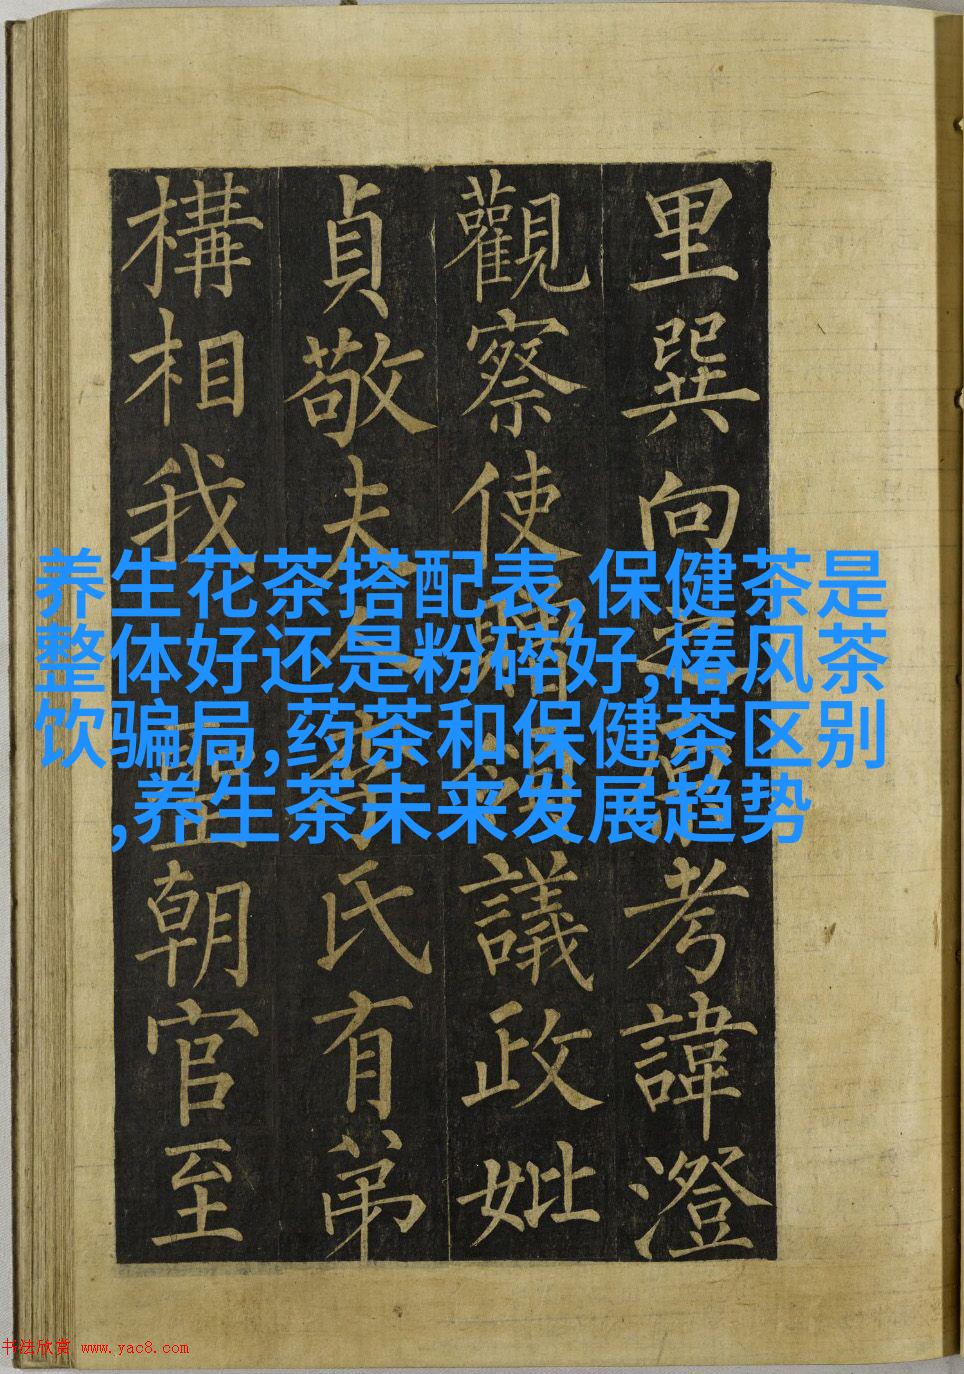 里巽向考諱澄
觀察使贈議政妣
貞敬夫人氏有弟
構相我聖朝官至
养生花茶搭配表,保健茶是
整体好还是粉碎好,椿风茶
饮骗局,药茶和保健茶区别
,养生茶未来发展趋势
书法欣赏 www.yac8.com